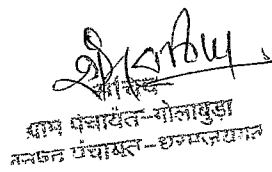 सचिव
ग्राम पंचायत-गोलाबुडा
जनपद पंचायत-धरमजयगढ़